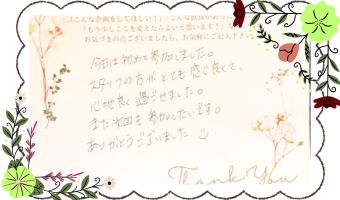 「こんな企画をしてほしい！」「こんな
「もう少しここを変えたらよいと思います！」
お気づきの点がございましたら、お気軽にご記入下さい
今日は初めて参加しました。
スタッフの方がとても感じ良くて、
心地良く過ごせました。
また次回も参加したいです。
ありがとうございました
Thank You